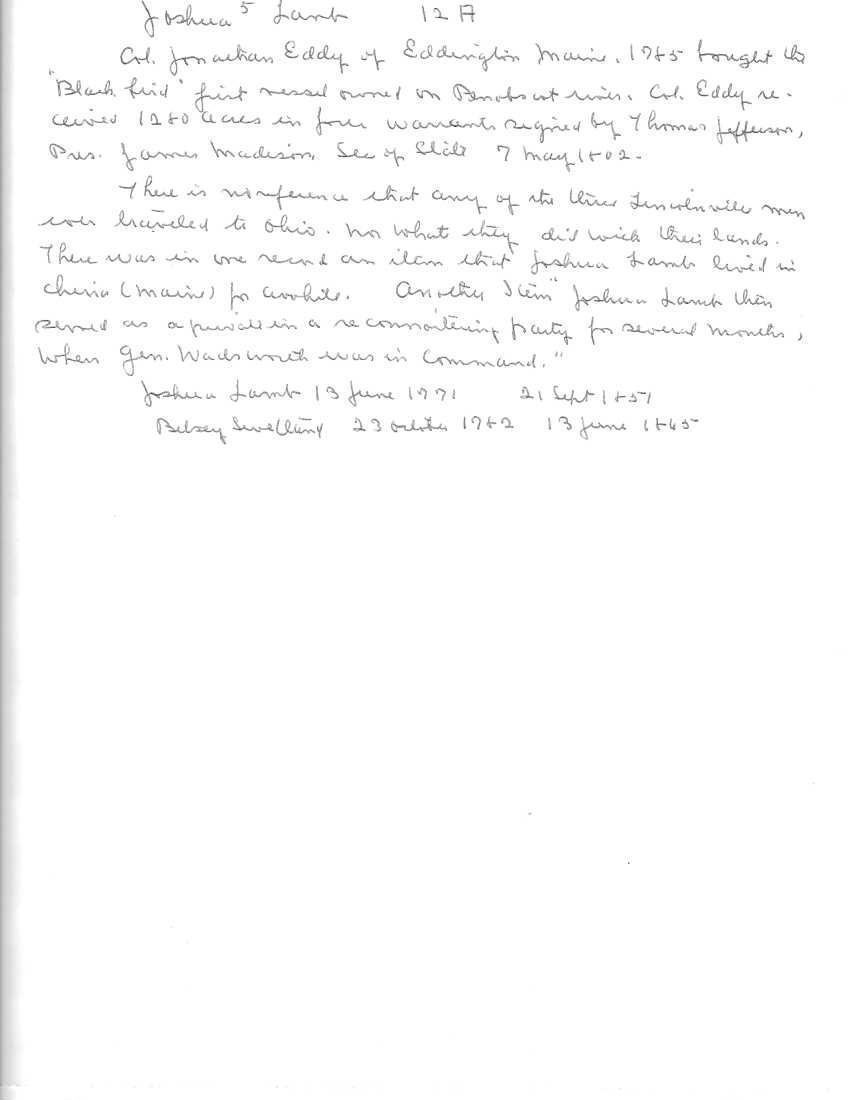 Joshua⁵ Lamb 12 A
Col. Jonathan Eddy of Eddington Maine, 1785 bought the
"Black bird" first vessel owned on Penobscot river. Col. Eddy re-
ceived 1280 acres in four warrants signed by Thomas Jefferson,
Pres. James Madison Sec of State 7 May 1802.
There is no reference that any of the three Lincolnville men
ever traveled to Ohio. nor what they did with their lands.
There was in one record an item that Joshua Lamb lived in
China (Maine) for awhile. Another Item "Joshua Lamb then
served as a private in a reconnoitering party for several months,
when Gen. Wadsworth was in Command."
Joshua Lamb 13 June 1771 21 Sept 1857
Betsey 23 October 1782 13 June 1845